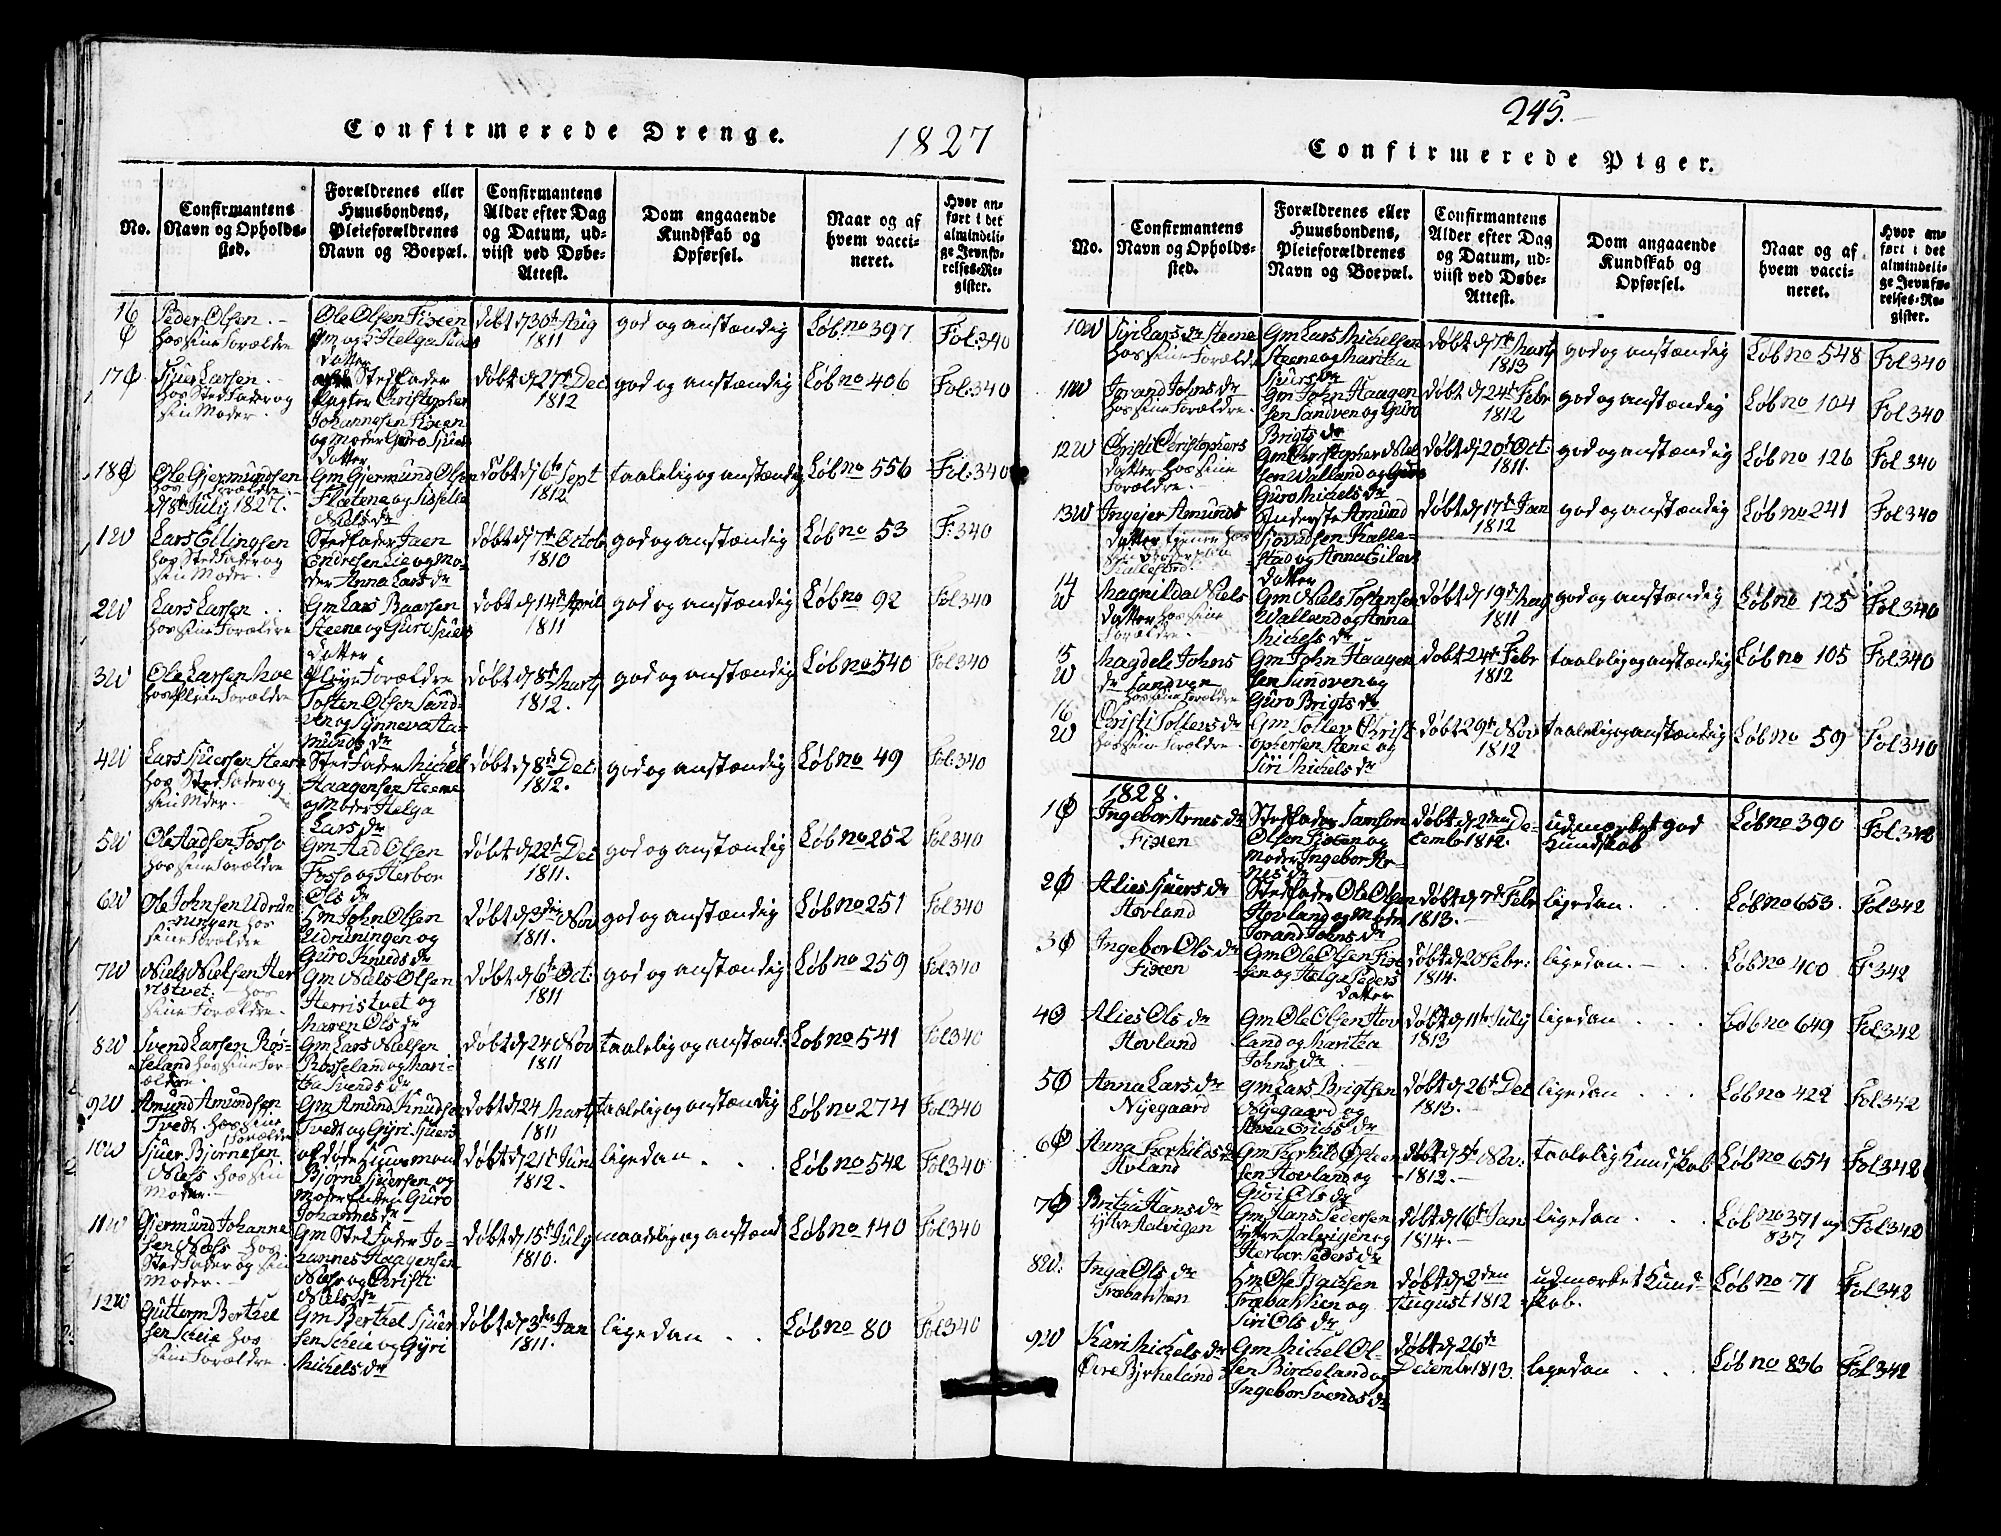 Confirmerede Drenge.
1827
No.
Confirmantens Navn og Opholds-sted.
Forældrenes eller Huusbondens, Pleieforældrenes Navn og Boepæl.
Confirmantens Alder efter Dag og Datum, ud-viist ved Døbe-Attest.
Dom angaaende Kundskab og Opførsel.
Naar og af hvem vacci-neret.
Hvor an-ført i det almindeli-ge Jevnfø-relses-Re-gister.
16 Ø
Peder Olsen. –
hos sine Forældre
Ole Olsen Fixen
døbt d 30t Aug
1811
god og anstændig
Løb no 397
Fol: 340
17 Ø
Sjur Larsen. –
hos Stedfader og
sin Moder.
Stedfader
Christopher
Johannesen Fixen
og Moder Guro Sjurs
datter
døbt d 27t Dec
1812
god og anstændig
Løb no 406
Fol: 340
18 Ø
Ole Gjermundsen
hos sine Forældre. –
d 8t July 1827.
Gm Gjermund Olsen
Flætene og Sisselle
Niels dr
døbt d 6te Sept
1812
taalelig og anstændig
Løb no 556
Fol: 340
1 W
Lars Ellingsen
hos Stedfader og
sin Moder.
Stedfader Jaen
Endresen Lie og Mo-
der Anna Lars dr
døbt d 7t Octob
1810
god og anstændig
Løb no 53
F: 340
2 W
Lars Larsen . .
hos sine Forældre
Gm Lars Baarsen
Steene og Guro Sjurs
datter
døbt d 14t April
1811
god og anstændig
Løb no 92
Fol 340
3 W
Ole Larsen Moe
hos Pleie Forældre
Pleye Forældre
Tosten Olsen Sand-
ven og Synneva Aa-
munds dr
døbt d 8t Marts
1812.
god og anstændig
Løb no 540
Fol: 340
4 W
Lars Sjursen Steene
hos Stedfader og
sin Moder. –
Stedfader Michel
Haagensen Steene
og Moder Helga
Lars dr
døbt d 8de Dec
1812.
god og anstændig
Løb no 49
Fol. 340
5 W
Ole Aadsen Fosso
hos sine Forældre
Gm Aad Olsen
Fosso og Herbor
Ols dr
døbt d 22t Dec
1811.
god og anstændig
Løb no 252
Fol 340
6 W
Ole Johnsen Udrun
ningen hos
sine Forældre
Hm John Olsen
Udruningen og
Guro Knuds dr
døbt d 3die Nov
1811.
god og anstændig
Løb no 251
Fol 340
7 W
Niels Nielsen Her
ristvet. – hos
sine Forældre.
Gm Niels Olsen
Herristvet og
Maren Ols dr
døbt d 6t Oct:
1811
god og anstændig
Løb no 259
Fol 340
8 W
Svend Larsen Røs-
seland hos sine For-
ældre.
Gm Lars Nielsen
Røsseland og Mari-
tha Svends dr
døbt d 24 Nov
1811
taalelig og anstænd.
Løb no 541
Fol 340
9 W
Amund Amundsen
Tvedt. hos sine
Forældre
Gm Amund Knudsen
Tvedt og Gyri Sjurs
døbt d 24 Marts
1811
taalelig og anstændig
Løb no 274
Fol 340
10 W
Sjuer Bjørnesen
Næss hos sin
Moder. –
afdøde Huusmand
Bjørne Sjursen og
Moder Enken Guro
Johannes dr –
døbt d 21t Juni
1812.
ligedan . . .
Løb no 542
Fol 340
11 W
Gjermund Johanne
sen Næss hos
Stedfader og sin
Moder. –
Gm Stedfader Jo-
hannes Haagensen
Næss og Christi
Niels dr
døbt d 15t July
1810.
maadelig og anstænd
Løb no 140
Fol 340
12 W
Guttorm Berthel
sen Scheie hos
sine Forældre.
Gm Berthel Sjuer
sen Scheie og Gyri
Michels dr
døbt d 3die Jan
1811.
ligedan . .
Løb no 80
Fol 340
245. –
Confirmerede Piger.
No.
Confirmantens Navn og Opholds-sted.
Forældrenes eller Huusbondens, Pleieforældrenes Navn og Boepæl.
Confirmantens Alder efter Dag og Datum, ud-viist ved Døbe-Attest.
Dom angaaende Kundskab og Opførsel.
Naar og af hvem vacci-neret.
Hvor an-ført i det almindeli-ge Jevnfø-relses-Re-gister.
10 W
Siri Lars dr Steene
hos sine Forældre
Gm Lars Michelsen
Steene og Maritha
Sjurs dr
døbt d 7t Marts
1813
god og anstændig
Løb no 548
Fol 340
11 W
Jorand Johns dr
hos sine Forældre.
Gm John Haagen
sen Sandven og Guro
Brigts dr
døbt d 24t Febr
1812
god og anstændig
Løb no 104
Fol 340
12 W
Christi Christophers
datter hos sine
Forældre. –
Gm Christopher Nie
lsen Walland og
Guro Michels dr
døbt d 20t Oct
1811.
god og anstændig
Løb no 126
Fol 340
13 W
Ingejer Amunds
datter tjener hos
Amund
Kalle-
stad og Anna Eilevs
datter
døbt d 17t Jan
1812
god og anstændig
Løb no 241
Fol 340
14 W
Magnilda Niels
datter hos sine
Forældre.
Gm Niels Tostensen
Walland og Anna
Michels dr
døbt d 19t May
1811
god og anstændig
Løb no 125
Fol 340
15 W
Magdeli Johns
dr Sandven
hos sine Forældre
Gm John Haagen
sen Sandven og
Guro Brigts dr
døbt 24t Febr
1812
taalelig og anstændig
Løb no 105
Fol 340
16 W
Christi Tollers dr
hos sine Forældre.
Gm Toller Christ
ophersen Stene og
Siri Michels dr
døbt 29t Nov
1812
taalelig og anstændig
Løb no 59
Fol 340
1828.
1 Ø
Ingebor Arnes dr
Fixen
Stedfader Samson
Olsen Fixen og
Moder Ingebor Ar-
nes dr
døbt d 2den De-
cembr 1812.
udmærket god
Kundskab
Løb no 390
Fol. 342
2 Ø
Alies Sjuers dr
Hovland
Stedfader Ole Olsen
Hovland og Moder
Jorand Johns dr
døbt d 7t Febr
1813. –
ligedan. . .
Løb no 653.
Fol 342
3 Ø
Ingebor Ols dr
Fixen
Gm Ole Olsen Fix
sen og Helga Peders
datter
døbt d 20 Febr:
1814.
ligedan. – .
Løb no 400
F 342
4 Ø
Alies Ols dr
Hovland
Gm Ole Olsen Hov
land og Maritha
Johns dr
døbt d 11t July
1813
ligedan . . .
Løb no 649
Fol 342
5 Ø
Anna Lars dr
Nijegaard
Gm Lars Brigtsen
Nijegaard og
Anna Erichs dr
døbt d 26t Dec
1813. –
ligedan . . .
Løb no 422
Fol 342
6 Ø
Anna Therkilds dr
Hovland
Gm Therkild
sen Hovland og
Guri Ols dr
døbt d 5t Nov:
1812. –
taalelig Kundskab
Løb no 654
Fol 342
7 Ø
Britha Hans dr
Ytre Aalvigen
Gm Hans Pedersen
Ytre Aalvigen og
Herbor Peders dr
døbt d 16t Jan
1814. –
ligedan . . .
Løb no 371 og
837
Fol 342
8 W.
Inga Ols dr
Træbakken
Hm Ole Isachsen
Træbakken og
Siri Ols dr
døbt d 2den
August 1812
udmærket Kund-
skab.
Løb no 71
Fol 342
9 W
Kari Michels dr
Øvre Bjrkeland
Gm Michel Ol-
sen Birkeland og
Ingebor Svends dr
døbt d 26t
Decembr 1813.
ligedan . . .
Løb no 836
Fol 342